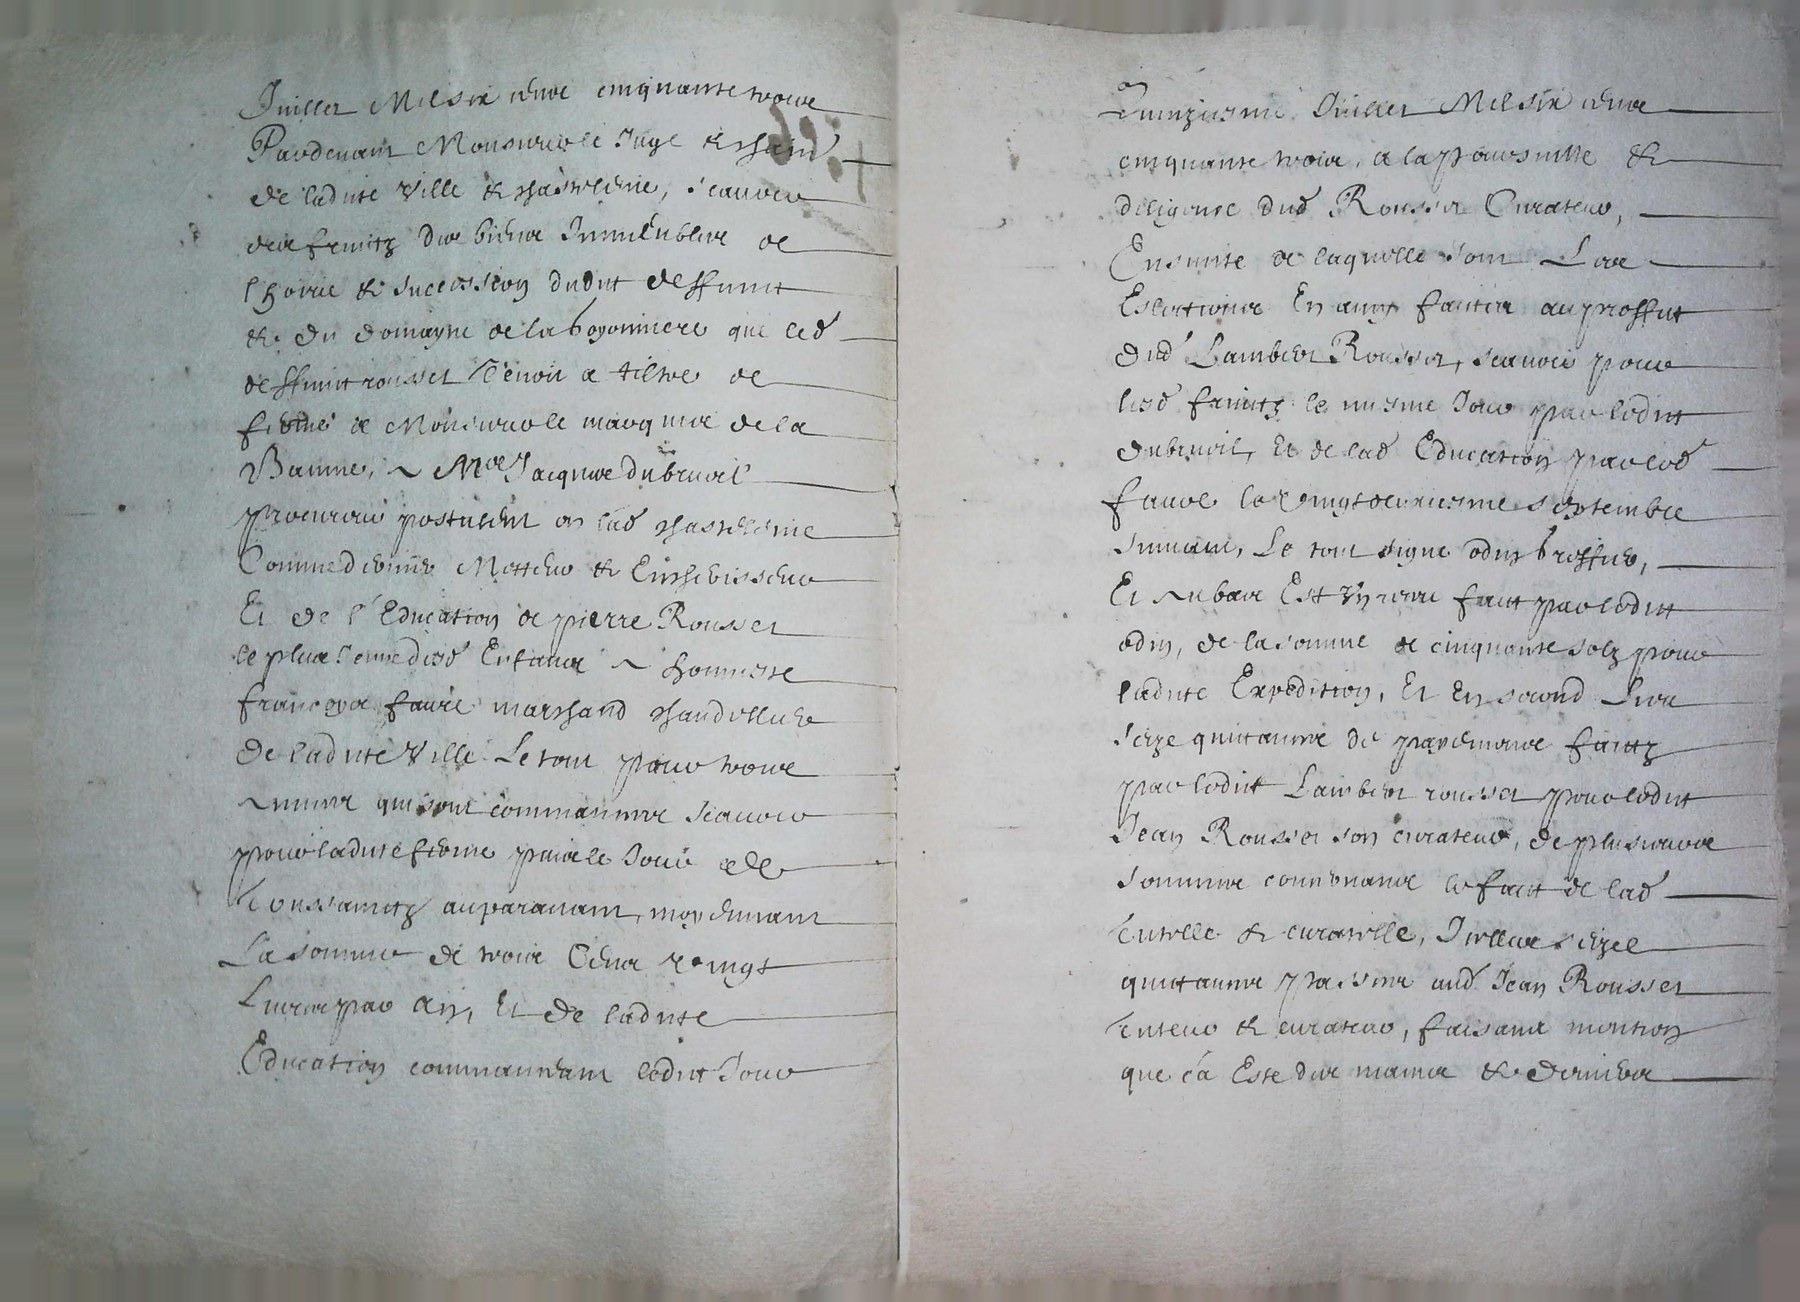 Juillet Mil six cens cinquante trois
Pardevant Monsieur le Juge & Chastelain
de ladite Ville & Chastelenie, scavoir
des fruictz des biens Immeubles de
l'hoirie & succession dudit deffunt
& du domayne de la boyonniere que led
deffunt rousset Tenoit a tiltre de
ferme de Monsieur le marquis de la
Baume, a Me Jacques dubrueil
procureur postulant en lad Chastelenie
Comme dernier Metteur & Encherisseur
Et de l'Education de pierre Rousset
le plus Jeune desd Enfans a honneste
françoys faure marchand Chandellier
de ladite Ville Le tout pour trois
annees qui sont commancees scavoir
pour ladite ferme puis le Jour de
Toussainctz auparavant, moyennant
La somme de trois Cens vingt
Livres par an, Et de ladite
Education commanceant ledit Jour
quinziesme Juillet Mil six cens
cinquante trois, a la poursuitte &
diligence dud Rousset Curateur,
Ensuite de laquelle sont Les
Estrousses En aiant faictes au proffit
dud Lambert Rousset, scavoir pour
lesd fruictz le mesme Jour par ledit
dubrueil, Et de lad Education par led
faure le vingtdeuxiesme septembre
suivant, Le tout signe odin greffier,
Et au bas Est Un receu faict par ledit
odin, de la somme de cinquante solz pour
ladite Expedition, Et En second Lieu
seize quittances de payemens faictz
par ledit Lambert rousset pour ledit
Jean Rousset son curateur, de plusieurs
sommes concernans le faict de lad
tutelle & curatelle, Icelles seize
quittances passees aud Jean Rousset
tuteur & curateur, faisans mention
que ça Este des mains & deniers